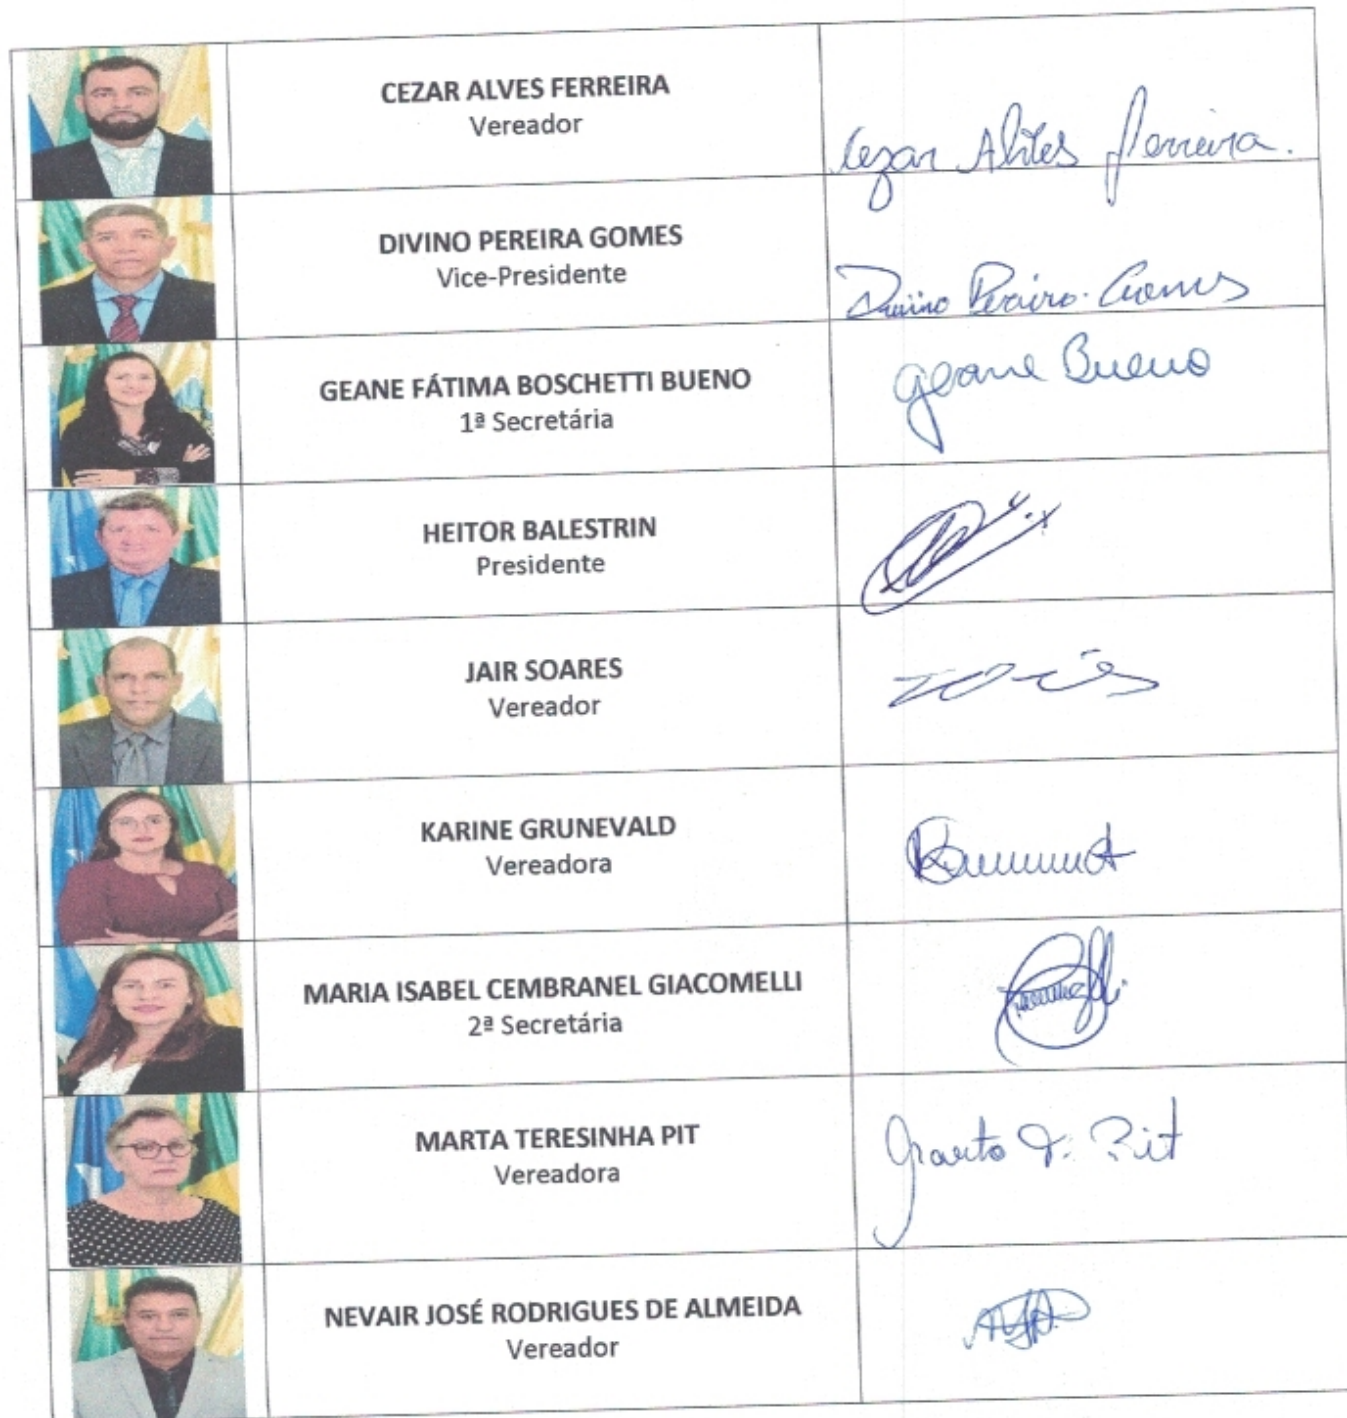 CEZAR ALVES FERREIRA
Vereador
Cezar Alves Ferreira.
DIVINO PEREIRA GOMES
Vice-Presidente
Divino Pereira Gomes
GEANE FÁTIMA BOSCHETTI BUENO
1ª Secretária
Geane Bueno
HEITOR BALESTRIN
Presidente
JAIR SOARES
Vereador
KARINE GRUNEVALD
Vereadora
MARIA ISABEL CEMBRANEL GIACOMELLI
2ª Secretária
MARTA TERESINHA PIT
Vereadora
Marta T. Pit
NEVAIR JOSÉ RODRIGUES DE ALMEIDA
Vereador